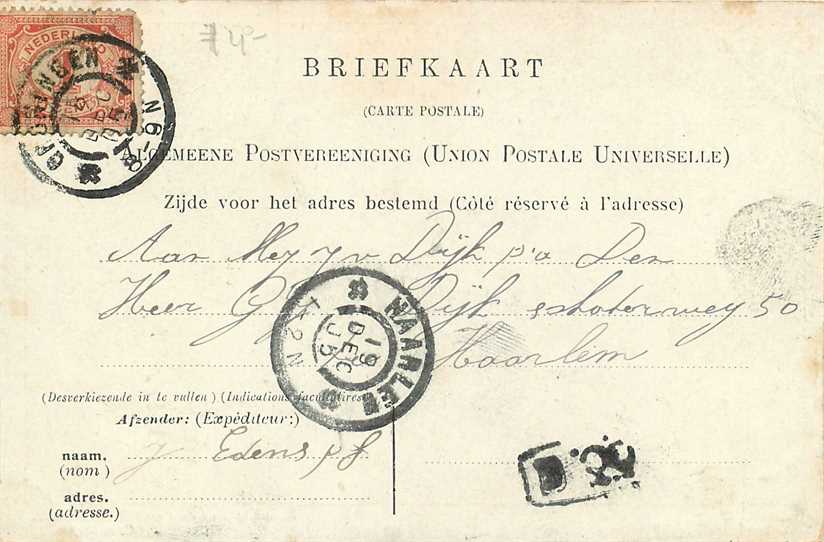 NEDERLAND
GRONINGEN
6-8N
14-
BRIEFKAART
(CARTE POSTALE)
ALGEMEENE POSTVEREENIGING (UNION POSTALE UNIVERSELLE)
Zijde voor het adres bestemd (Côté réservé à l'adresse)
Aan Mej J v Dijk p/a Den
Heer G Dijk schoterweg 50
Haarlem
HAARLEM
19 DEC 05
1-2N
(Desverkiezende in te vullen) (Indications facultatives)
Afzender: (Expéditeur:)
naam. J Edens
(nom)
adres.
(adresse.)